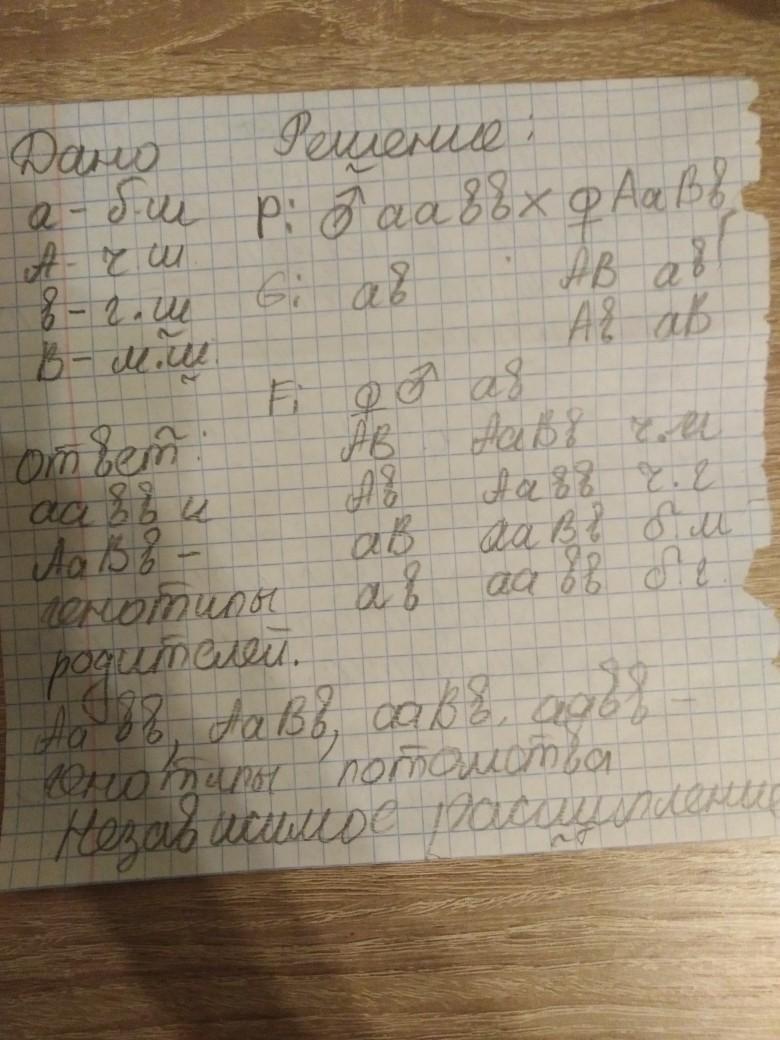 Дано Решение:
а - б.ш P: ♂ аавв х ♀ АаВв
А - ч.ш
G: ав АВ ав
в - г.ш Ав аВ
В - м.ш.
F: ♀♂ ав
Ответ: АВ АаВв ч.м
аавв и Ав Аавв ч.г
АаВв - аВ ааВв б.м
генотипы ав аавв б.г.
родителей.
Аавв, АаВв, ааВв, аавв -
генотипы потомства
Независимое расщипление